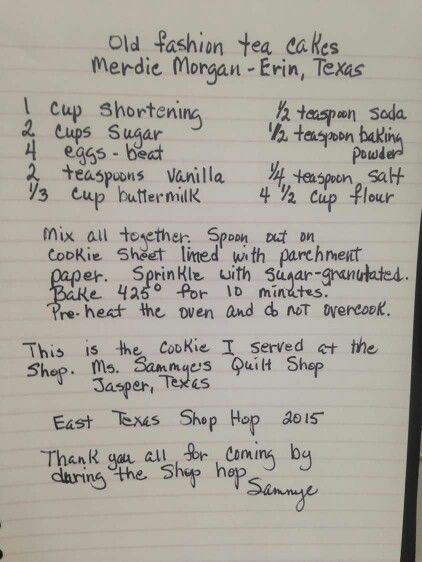 Old fashion tea cakes
Merdie Morgan - Erin, Texas
1 cup shortening
2 cups sugar
4 eggs - beat
2 teaspoons vanilla
1/3 cup buttermilk
1/2 teaspoon soda
1/2 teaspoon baking
powder
1/4 teaspoon salt
4 1/2 cup flour
Mix all together. Spoon out on
cookie sheet lined with parchment
paper. Sprinkle with sugar-granutated.
Bake 425° for 10 minutes.
Pre-heat the oven and do not overcook.
This is the cookie I served at the
Shop. Ms. Sammye's Quilt Shop
Jasper, Texas
East Texas Shop Hop 2015
Thank you all for coming by
during the Shop hop
Sammye